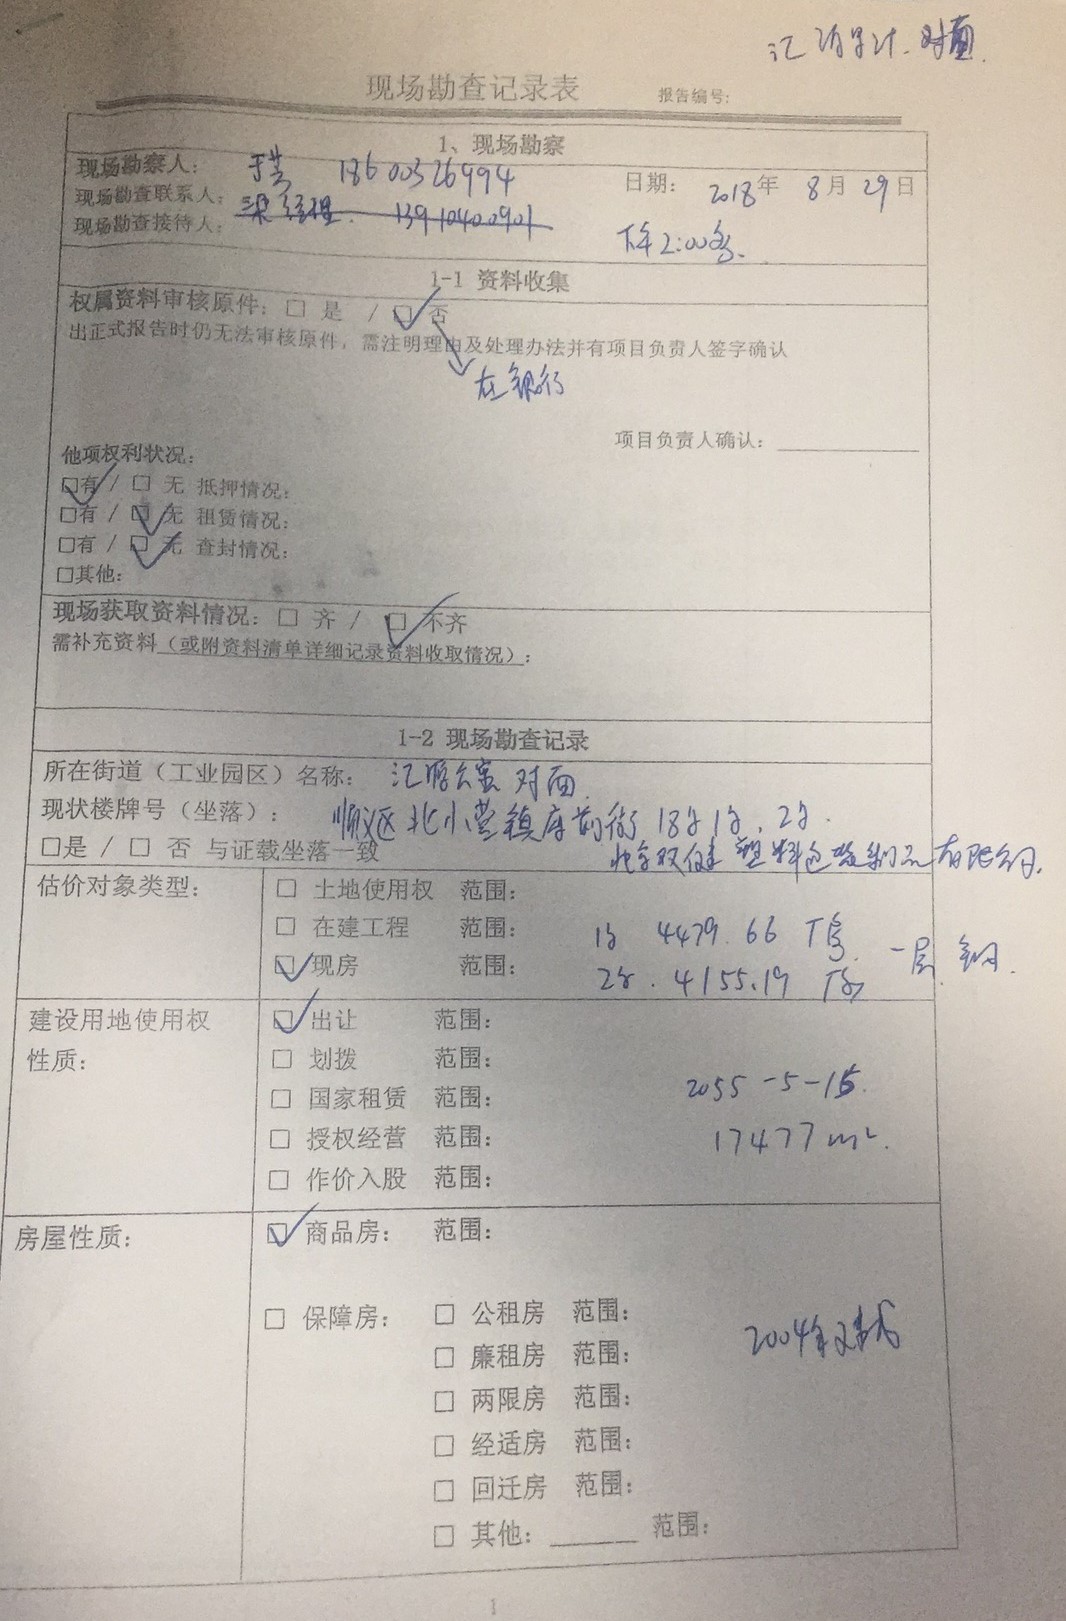 对面
现场勘查记录表
报告编号:
1、现场勘察
现场勘察人: 18600326994
日期: 2018年 8月29日
现场勘查联系人: 梁经理 13910400901
现场勘查接待人:
下午2:00
1-1 资料收集
权属资料审核原件: □ 是 / ☑ 否
出正式报告时仍无法审核原件，需注明理由及处理办法并有项目负责人签字确认
在银行
项目负责人确认:
他项权利状况:
☑有 / □ 无 抵押情况:
□有 / ☑ 无 租赁情况:
□有 / ☑ 无 查封情况:
□其他:
现场获取资料情况: □ 齐 / ☑ 不齐
需补充资料（或附资料清单详细记录资料收取情况）:
1-2 现场勘查记录
所在街道（工业园区）名称: 对面
现状楼牌号（坐落）: 顺义区北小营镇府前街18号1号、2号.
□是 / □ 否 与证载坐落一致
塑料包装制品有限公司.
估价对象类型: □ 土地使用权 范围:
□ 在建工程 范围:
1号 4479.66 厂房
☑ 现房 范围:
2号. 4155.19 厂房
一层 钢.
建设用地使用权性质: ☑ 出让 范围:
□ 划拨 范围:
□ 国家租赁 范围:
2055-5-15.
□ 授权经营 范围:
17477m².
□ 作价入股 范围:
房屋性质: ☑ 商品房: 范围:
□ 保障房: □ 公租房 范围:
2004年
□ 廉租房 范围:
□ 两限房 范围:
□ 经适房 范围:
□ 回迁房 范围:
□ 其他:______ 范围:
1